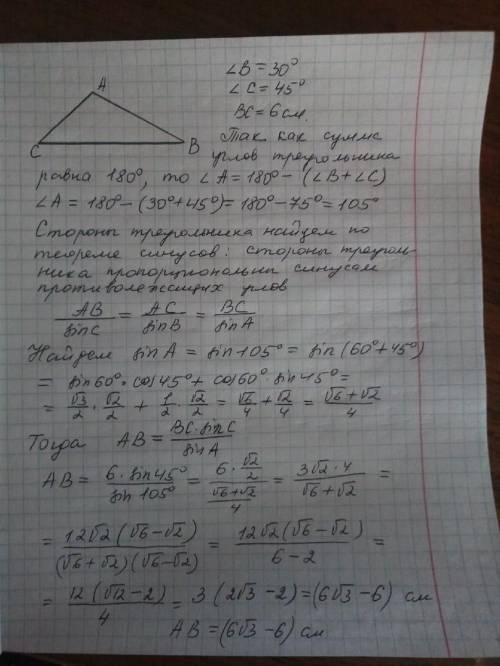 ∠B = 30°
∠C = 45°
BC = 6 см.
A
C
B
Так как сумма
углов треугольника
равна 180°, то ∠A = 180° − (∠B + ∠C)
∠A = 180° − (30° + 45°) = 180° − 75° = 105°
Стороны треугольника найдем по
теореме синусов: стороны треуголь-
ника пропорциональны синусам
противолежащих углов
AB/sin C = AC/sin B = BC/sin A
Найдем sin A = sin 105° = sin(60° + 45°)
= sin 60° · cos 45° + cos 60° · sin 45° =
= √3/2 · √2/2 + 1/2 · √2/2 = √6/4 + √2/4 = (√6 + √2)/4
Тогда AB = BC · sin C / sin A
AB = 6 · sin 45° / sin 105° = (6 · √2/2) / ((√6 + √2)/4) = 3√2 · 4 / (√6 + √2) =
= 12√2(√6 − √2) / ((√6 + √2)(√6 − √2)) = 12√2(√6 − √2) / (6 − 2) =
= 12(√12 − 2)/4 = 3(2√3 − 2) = (6√3 − 6) см
AB = (6√3 − 6) см